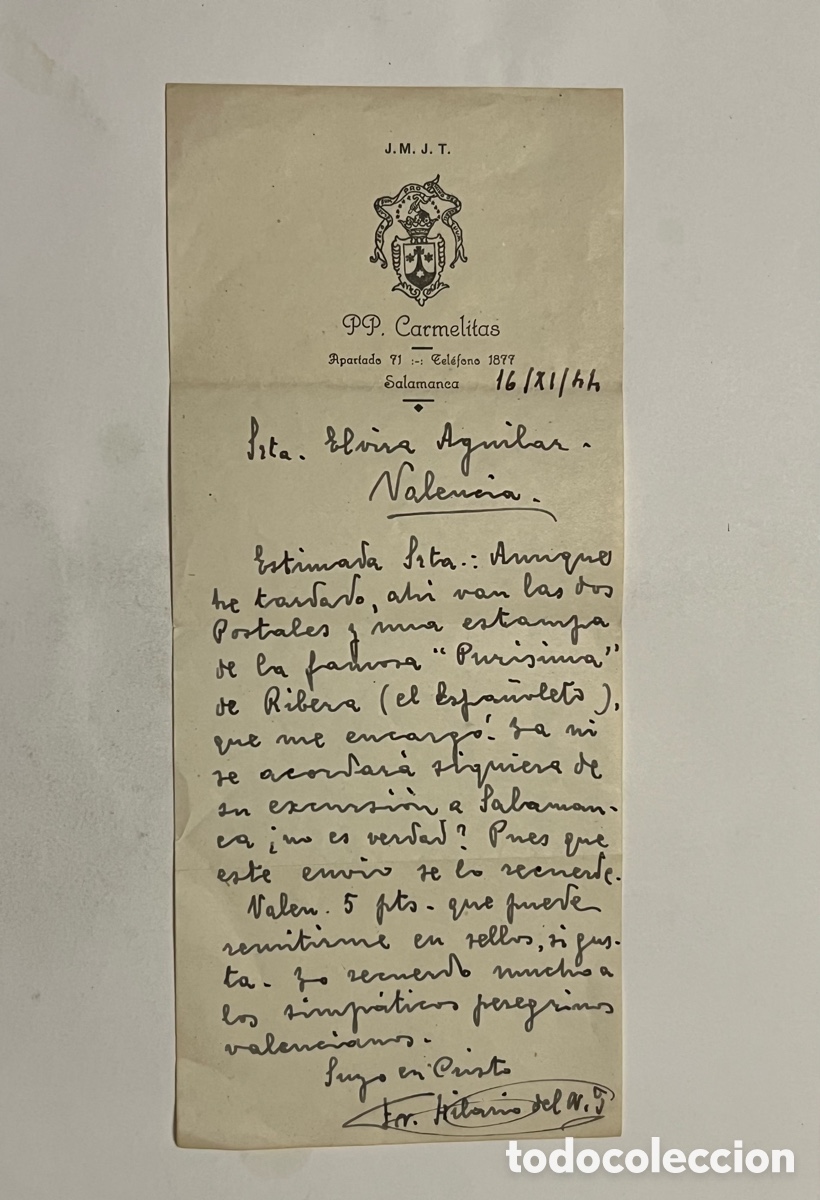 J. M. J. T.
PP. Carmelitas
Apartado 71 :-: Teléfono 1877
Salamanca 16/XI/44
Srta. Elvira Aguilar.
Valencia.
Estimada Srta.: Aunque
he tardado, ahí van las dos
Postales y una estampa
de la famosa "Purísima"
de Ribera (el Españoleto),
que me encargó. Ya ni
se acordará siquiera de
su excursión a Salaman-
ca ¿no es verdad? Pues que
este envío se lo recuerde.
Valen. 5 pts. que puede
remitirme en sellos, si gus-
ta. Yo recuerdo mucho a
los simpáticos peregrinos
valencianos.
Suyo en Cristo
Fr. Hilario del N. J
todocoleccion